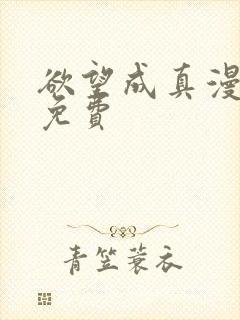 欲望成真漫
免費
青笠蓑衣